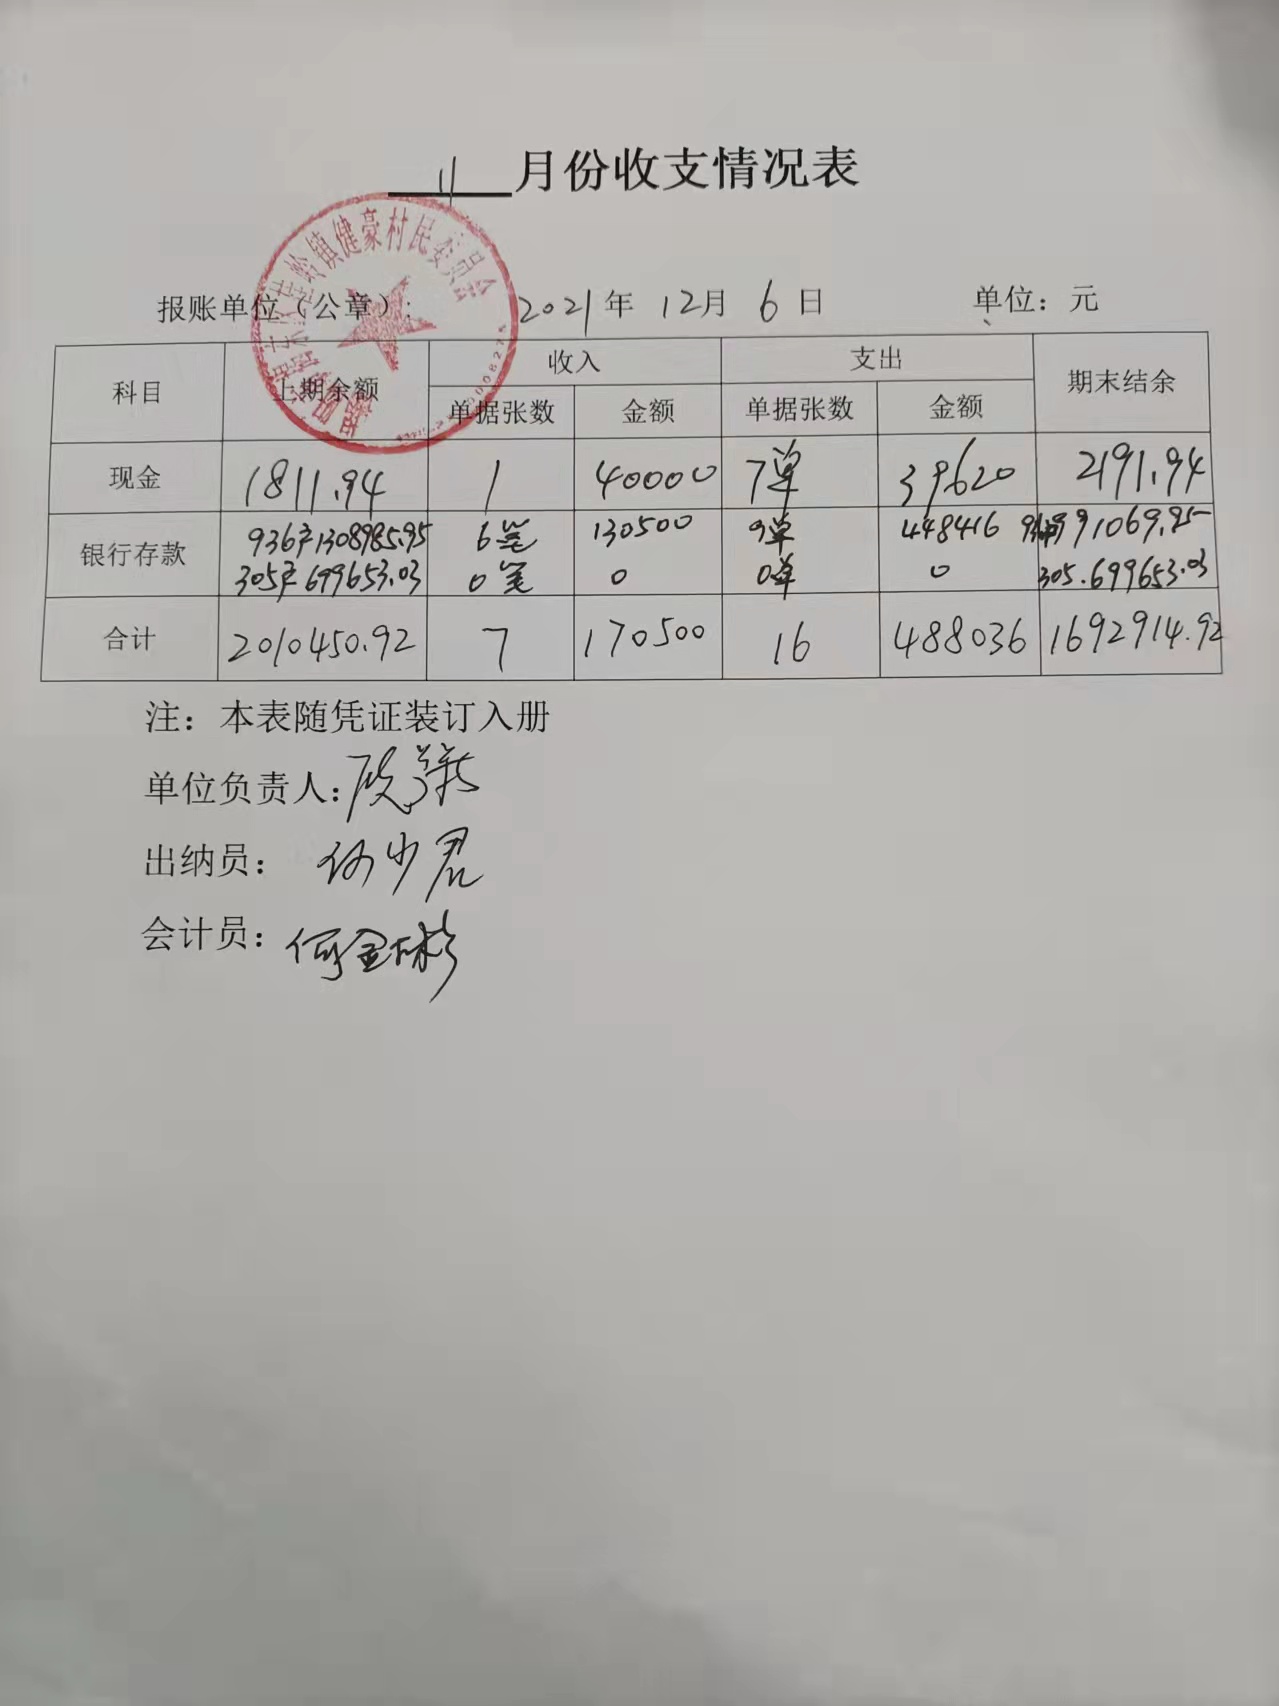 11月份收支情况表
桂岭镇健豪村民委员会
报账单位（公章）: 2021年 12月 6日 单位：元
科目 上期余额 收入 支出 期末结余
单据张数 金额 单据张数 金额
现金 1811.94 1 40000 7单 39620 2191.94
银行存款 936户1308985.95 6笔 130500 9单 448416 991069.95
305户699653.03 0笔 0 0单 0 305.699653.03
合计 2010450.92 7 170500 16 488036 1692914.92
注：本表随凭证装订入册
单位负责人:
出纳员： 何少君
会计员：何金彬